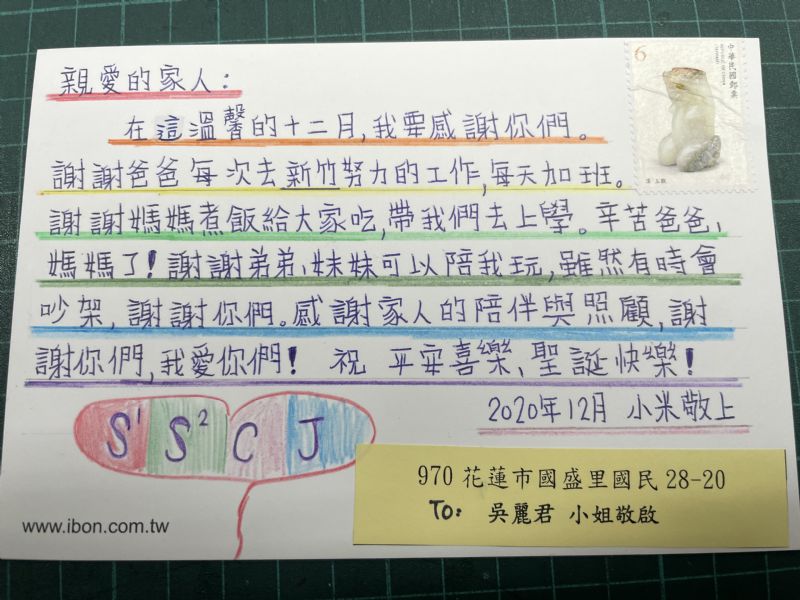 親愛的家人：
在這溫馨的十二月，我要感謝你們。
謝謝爸爸每次去新竹努力的工作，每天加班。
謝謝媽媽煮飯給大家吃，帶我們去上學。辛苦爸爸、
媽媽了！謝謝弟弟、妹妹可以陪我玩，雖然有時會
吵架，謝謝你們。感謝家人的陪伴與照顧，謝
謝你們，我愛你們！ 祝 平安喜樂，聖誕快樂！
2020年12月 小米敬上
S¹ S² C J
6
中華民國郵票
970 花蓮市國盛里國民 28-20
To: 吳麗君 小姐敬啟
www.ibon.com.tw